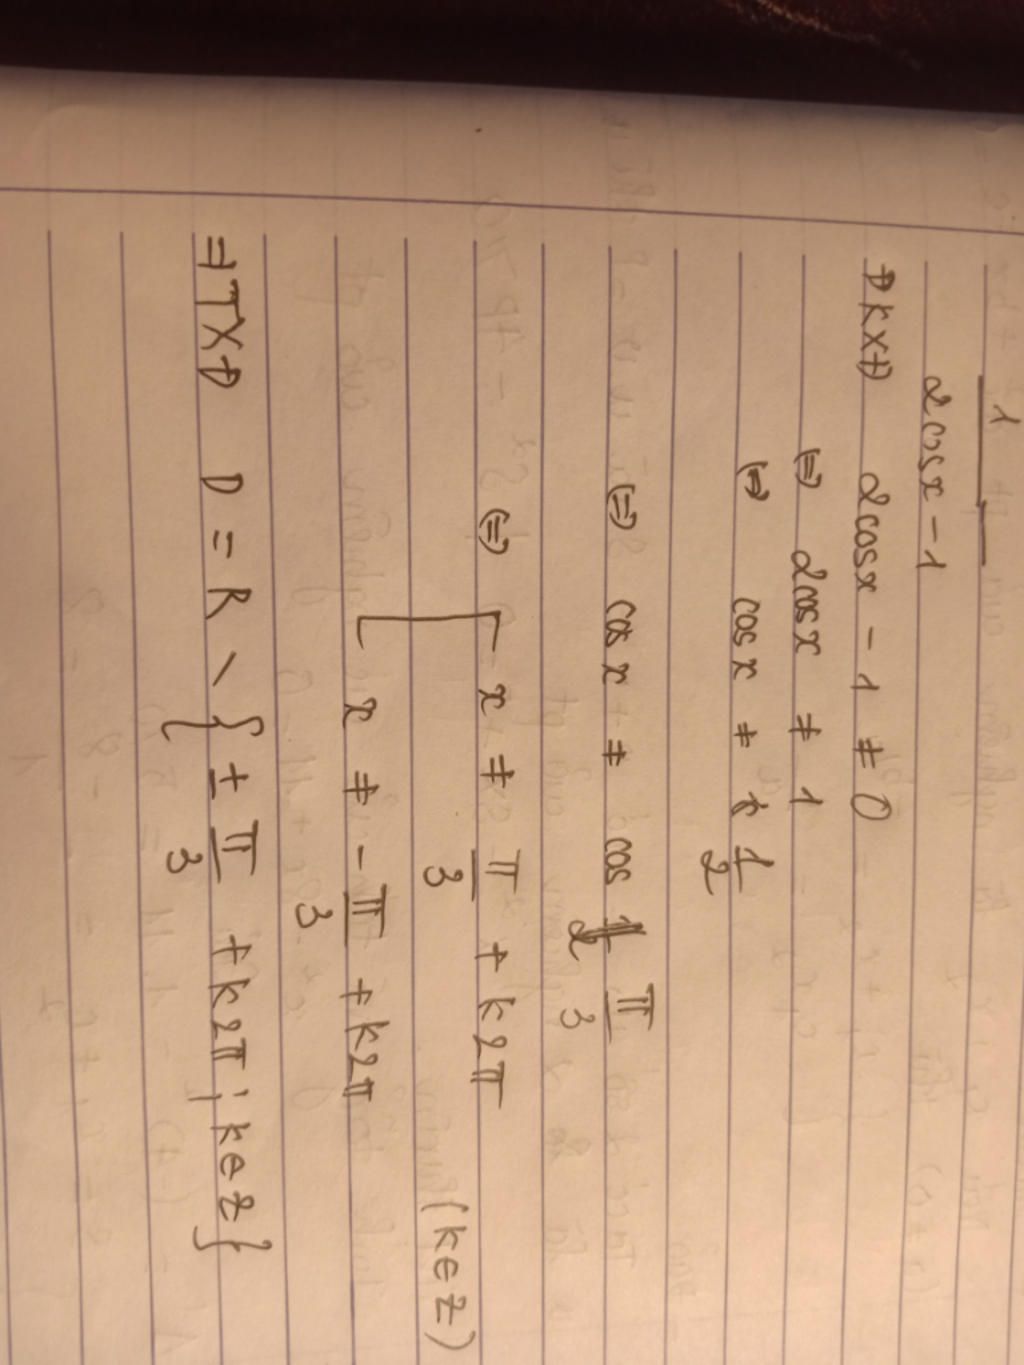 1
2cosx - 1
ĐKXĐ 2cosx - 1 ≠ 0
(=) 2cosx ≠ 1
(=) cosx ≠ 1/2
(=) cosx ≠ cos π/3
(=) [ x ≠ π/3 + k2π
x ≠ -π/3 + k2π (k∈Z)
=) TXĐ D = R \ { ± π/3 + k2π ; k∈Z }